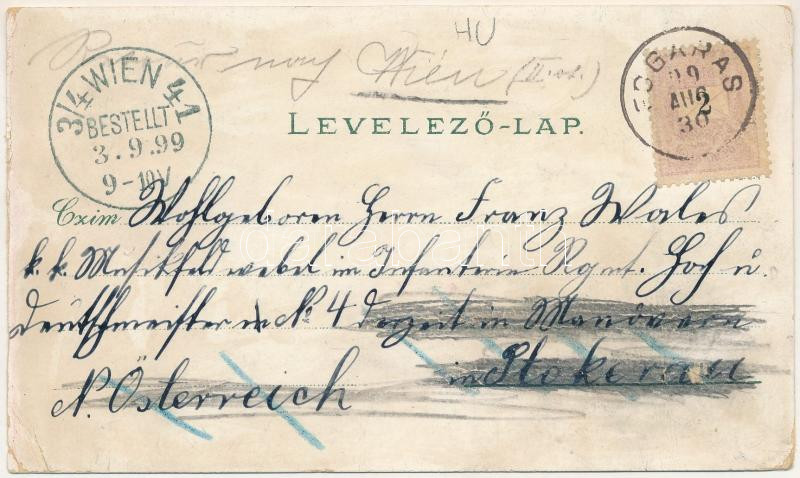 HU
Wien (II. )
3/4 WIEN 4/1
BESTELLT
3.9.99
9-10V
FOGARAS
99
AUG
30
2
LEVELEZŐ-LAP.
Czim Wohlgeboren Herrn Franz Wales
k. k. Musikfeldwebel im Infanterie Rgmt. Hoch u.
Deutschmeister No 4 derzeit in Manövern
in Stokerau
N. Österreich
darabanth